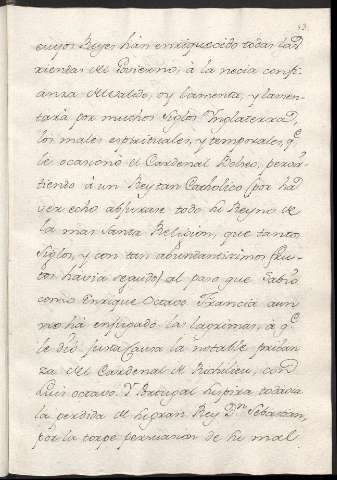 13.
cuyos Reyes hán enriquecido todas las
riendas del Govierno, á la necia confi-
anza del Valido, oy lamenta, y lamen-
tará por muchos siglos Ynglaterra,
los males espirituales, y temporales, q.e
le ocasionó el Cardenal Bolseo, pervir-
tiendo á un Rey tan Catholico (por ha-
ver echo abjurar todo su Reyno de
la mas Santa Religion, que tantos
Siglos, y con tan abundantissimos fru-
tos havia seguido) al paso que Sabio
como Enrique Octavo. Francia aun
no há enjugado las lagrimas, á q.e
le dió justa Causa la notable priban-
za del Cardenal de Richilieu, con
Luis octavo. Y Portugal suspira todavia
la perdida de su gran Rey D.n Sebastian,
por la torpe persuasion de su mal